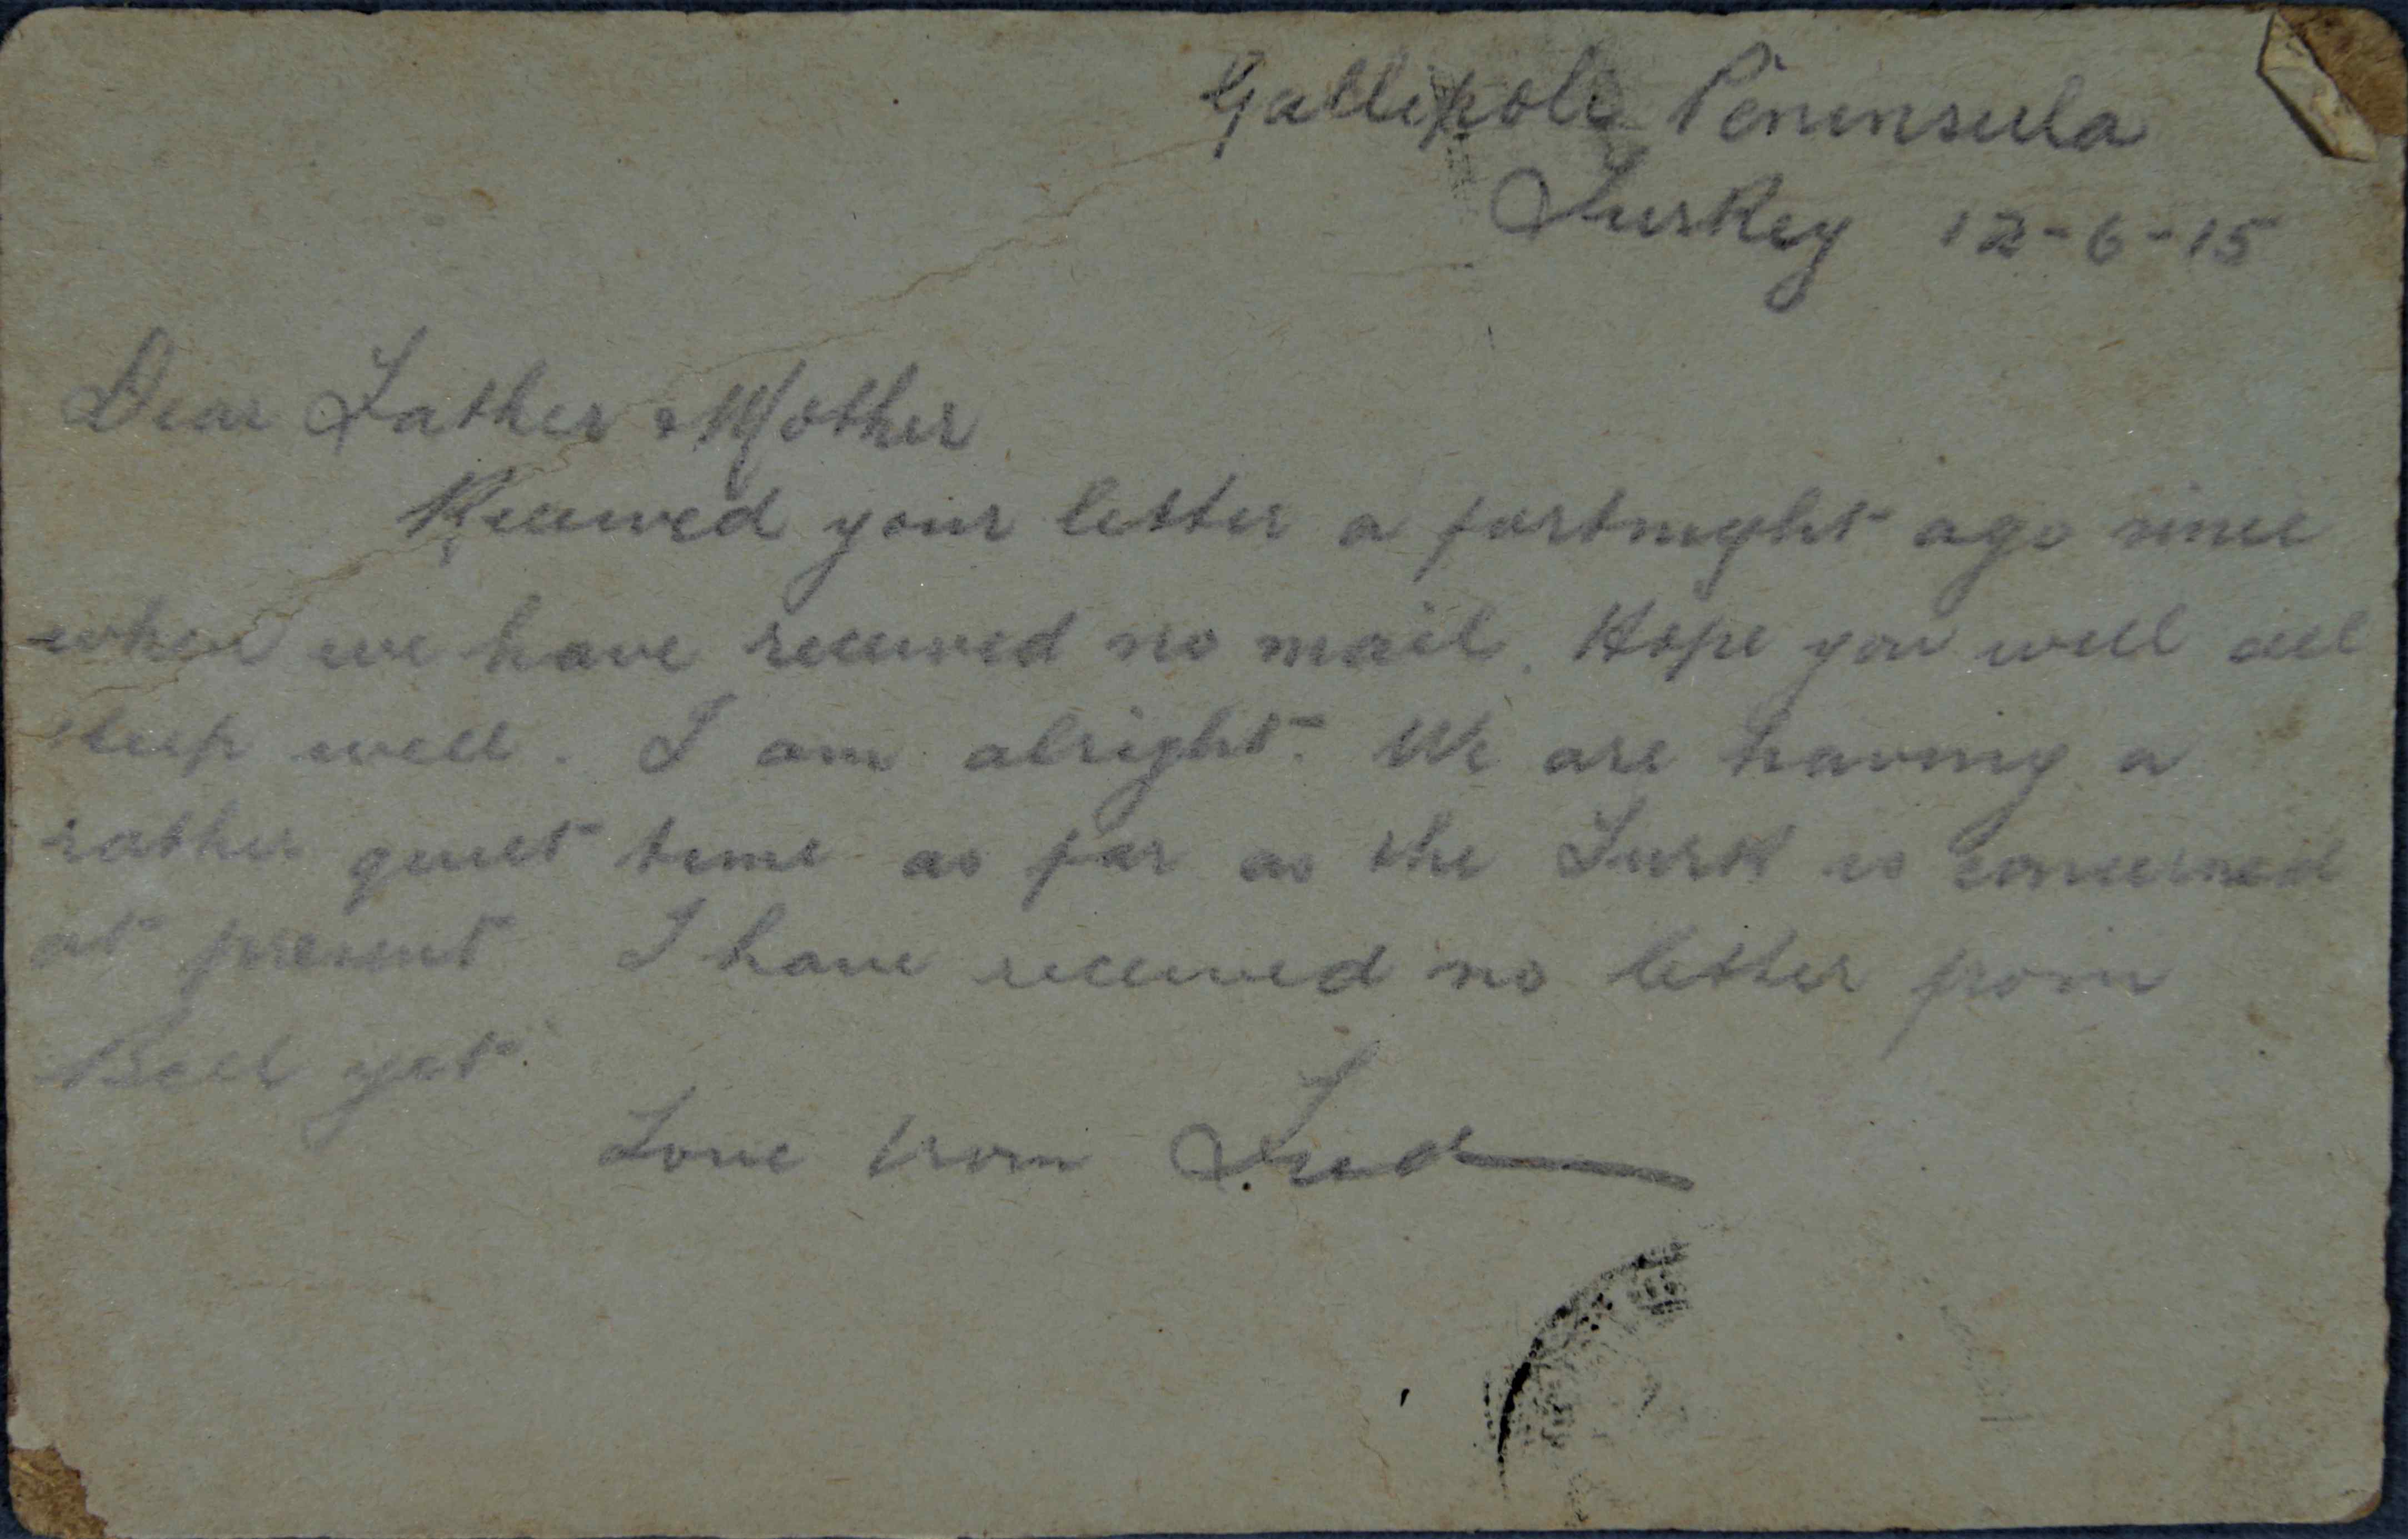 Gallipoli Peninsula
Turkey 12-6-15
Dear Father & Mother
Received your letter a fortnight ago since
when we have received no mail. Hope you will all
keep well. I am alright. We are having a
rather quiet time as far as the Turk is concerned
at present I have received no letter from
Bill yet.
Love from Fred